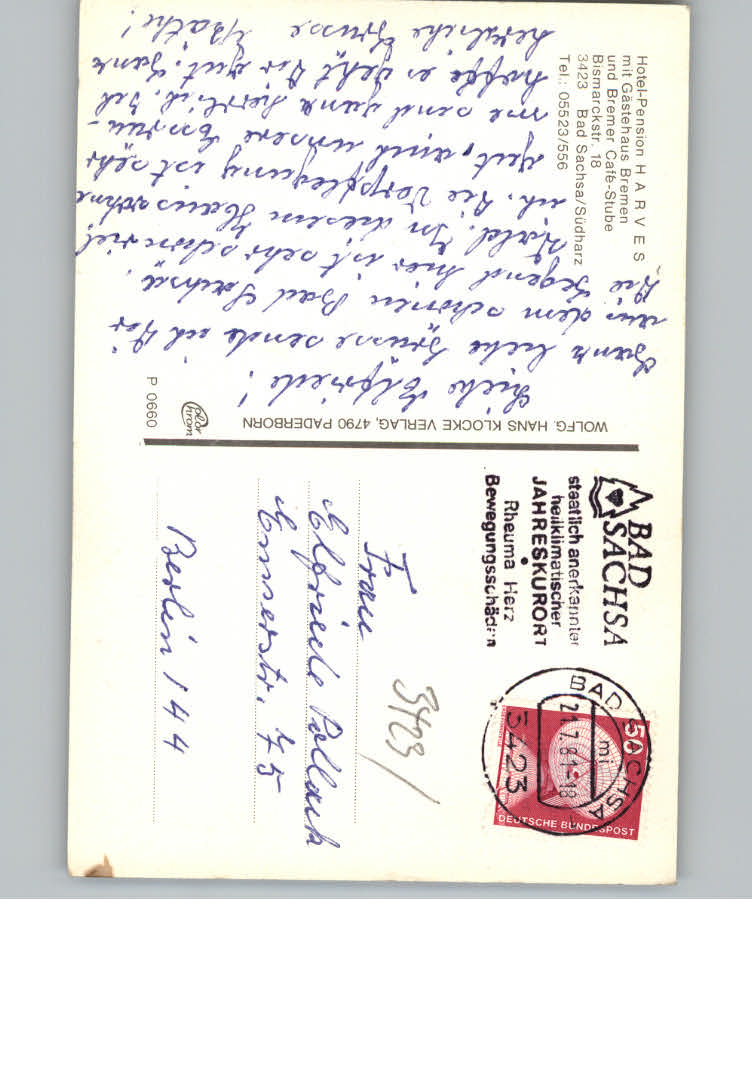 Hotel-Pension HARVES
mit Gästehaus Bremen
und Bremer Café-Stube
Bismarckstr. 18
3423 Bad Sachsa/Südharz
Tel.: 05523/556
Liebe Elfriede!
Ganz liebe Grüsse sende ich Dir
aus dem schönen Bad Sachsa.
Die Gegend hier ist sehr schön viel
Wald. In diesem Haus wohne
ich. Die Verpflegung ist sehr
gut, und unsere
sind ganz herrlich. Ich
hoffe es geht Dir gut. Ganz
herzliche Grüsse Käthe!
WOLFG. HANS KLOCKE VERLAG, 4790 PADERBORN
color
chrom
P 0660
BAD
SACHSA
staatlich anerkannter
heilklimatischer
JAHRESKURORT
Rheuma Herz
Bewegungsschäden
BAD SACHSA
mi
21.7.81-18
3423
50
DEUTSCHE BUNDESPOST
3423/
Frau
Elfriede Pollack
Emserstr. 75
Berlin 144